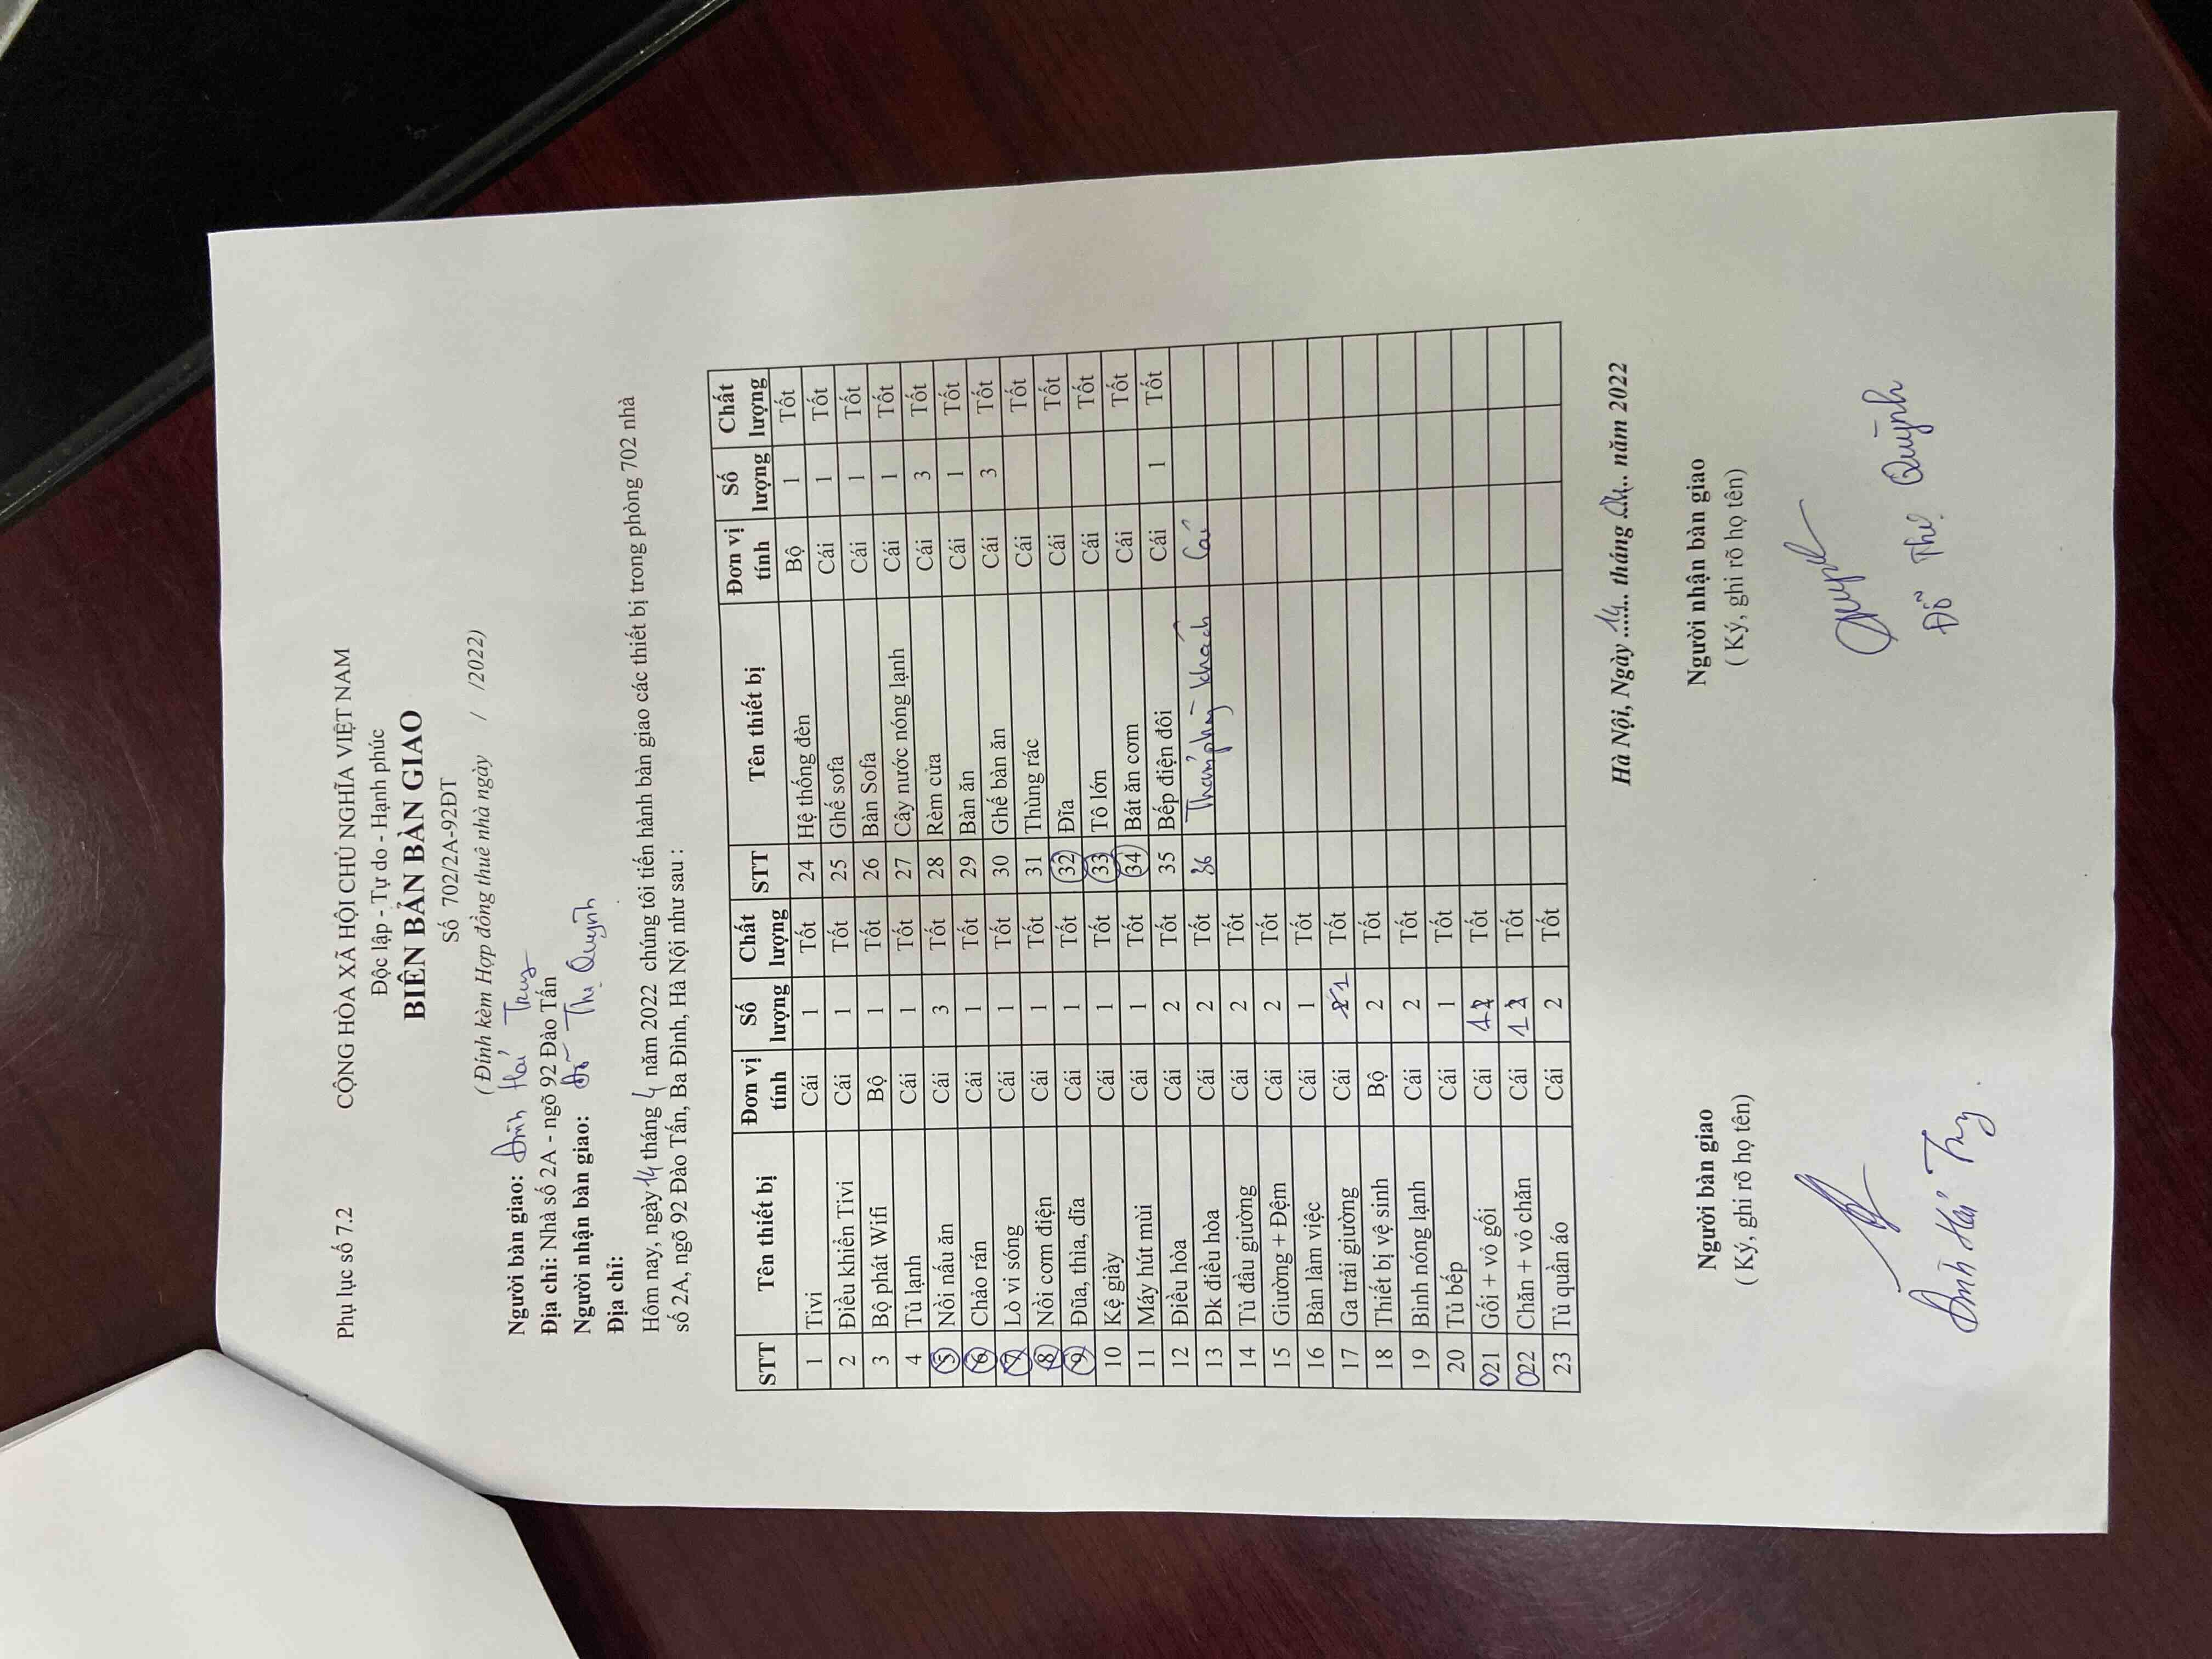 Phụ lục số 7.2 CỘNG HÒA XÃ HỘI CHỦ NGHĨA VIỆT NAM
Độc lập - Tự do - Hạnh phúc
BIÊN BẢN BÀN GIAO
Số 702/2A-92ĐT
( Đính kèm Hợp đồng thuê nhà ngày / /2022)
Người bàn giao: Đinh Hải
Địa chỉ: Nhà số 2A - ngõ 92 Đào Tấn
Người nhận bàn giao: Đỗ Thị Quỳnh
Địa chỉ:
Hôm nay, ngày 14 tháng 4 năm 2022 chúng tôi tiến hành bàn giao các thiết bị trong phòng 702 nhà
số 2A, ngõ 92 Đào Tấn, Ba Đình, Hà Nội như sau :
STT Tên thiết bị Đơn vị tính Số lượng Chất lượng STT Tên thiết bị Đơn vị tính Số lượng Chất lượng
1 Tivi Cái 1 Tốt 24 Hệ thống đèn Bộ 1 Tốt
2 Điều khiển Tivi Cái 1 Tốt 25 Ghế sofa Cái 1 Tốt
3 Bộ phát Wifi Bộ 1 Tốt 26 Bàn Sofa Cái 1 Tốt
4 Tủ lạnh Cái 1 Tốt 27 Cây nước nóng lạnh Cái 1 Tốt
5 Nồi nấu ăn Cái 3 Tốt 28 Rèm cửa Cái 3 Tốt
6 Chảo rán Cái 1 Tốt 29 Bàn ăn Cái 1 Tốt
7 Lò vi sóng Cái 1 Tốt 30 Ghế bàn ăn Cái 3 Tốt
8 Nồi cơm điện Cái 1 Tốt 31 Thùng rác Cái Tốt
9 Đũa, thìa, dĩa Cái 1 Tốt 32 Đĩa Cái Tốt
10 Kệ giày Cái 1 Tốt 33 Tô lớn Cái Tốt
11 Máy hút mùi Cái 1 Tốt 34 Bát ăn cơm Cái Tốt
12 Điều hòa Cái 2 Tốt 35 Bếp điện đôi Cái 1 Tốt
13 Đk điều hòa Cái 2 Tốt 36 Thảm phòng khách Cái
14 Tủ đầu giường Cái 2 Tốt
15 Giường + Đệm Cái 2 Tốt
16 Bàn làm việc Cái 1 Tốt
17 Ga trải giường Cái 1 Tốt
18 Thiết bị vệ sinh Bộ 2 Tốt
19 Bình nóng lạnh Cái 2 Tốt
20 Tủ bếp Cái 1 Tốt
21 Gối + vỏ gối Cái Tốt
22 Chăn + vỏ chăn Cái Tốt
23 Tủ quần áo Cái 2 Tốt
Hà Nội, Ngày 14 tháng 04 năm 2022
Người bàn giao Người nhận bàn giao
( Ký, ghi rõ họ tên) ( Ký, ghi rõ họ tên)
Quỳnh
Đinh Hải Đỗ Thị Quỳnh